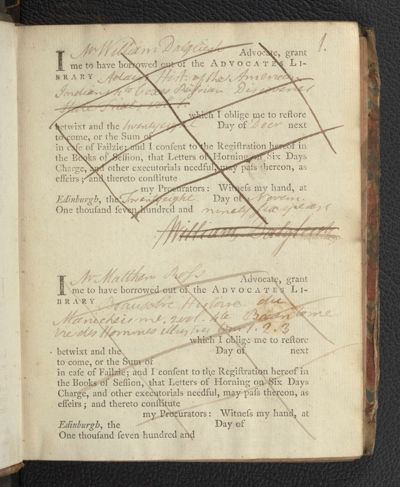 1.
I Mr William Dalgleish Advocate, grant
me to have borrowed out of the ADVOCATES LI-
BRARY Adairs Hist. of the American
Indians & Coxes Russian Discoveries
which I oblige me to reſtore
betwixt and the twentyeight Day of Decr next
to come, or the Sum of
in caſe of Failzie; and I conſent to the Regiſtration hereof in
the Books of Seſſion, that Letters of Horning on Six Days
Charge, and other executorials needful, may paſs thereon, as
effeirs; and thereto conſtitute
my Procurators: Witneſs my hand, at
Edinburgh, the Twentyeight Day of Novem.
One thouſand ſeven hundred and ninety ſix years
William Dalgleish
I Mr Matthew Ross Advocate, grant
me to have borrowed out of the ADVOCATES LI-
BRARY Histoire du
Manicheisme, 2 vol. 4to
vies des Hommes illustres 1. 2. 3
which I oblige me to reſtore
betwixt and the Day of next
to come, or the Sum of
in caſe of Failzie; and I conſent to the Regiſtration hereof in
the Books of Seſſion, that Letters of Horning on Six Days
Charge, and other executorials needful, may paſs thereon, as
effeirs; and thereto conſtitute
my Procurators: Witneſs my hand, at
Edinburgh, the Day of
One thouſand ſeven hundred and